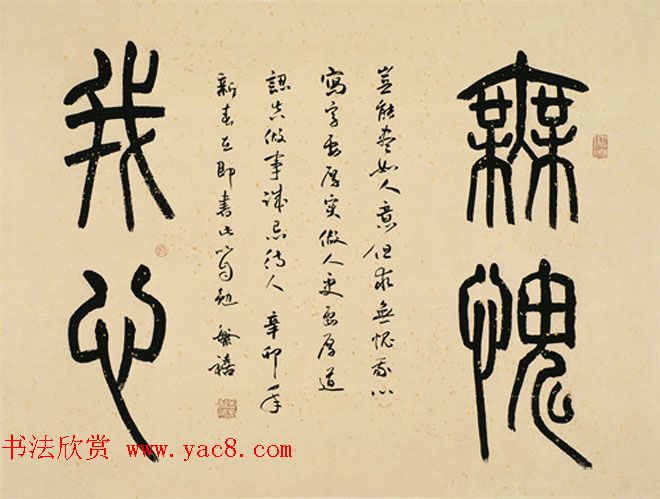 無愧
豈能盡如人意但求無愧我心
寫字要厚實做人更要厚道
認真做事誠恳待人 辛卯年
新春在即書此以自勉
我心
书法欣赏 www.yac8.com